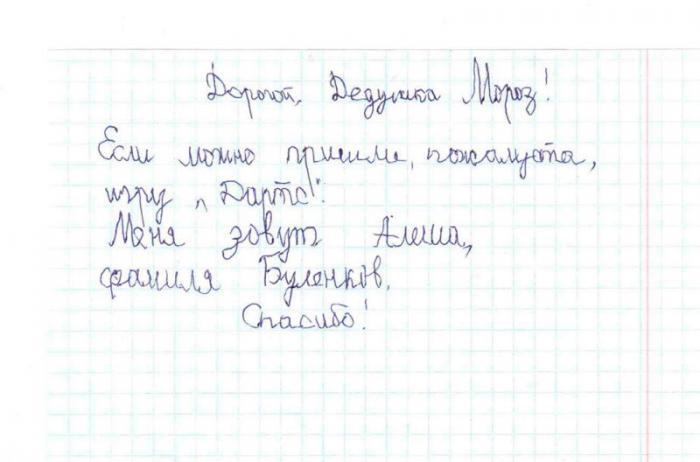 Дорогой, Дедушка Мороз!
Если можно пришли, пожалуста,
игру „Дартс".
Меня зовут Алеша,
фамиля Буленков.
Спасибо!